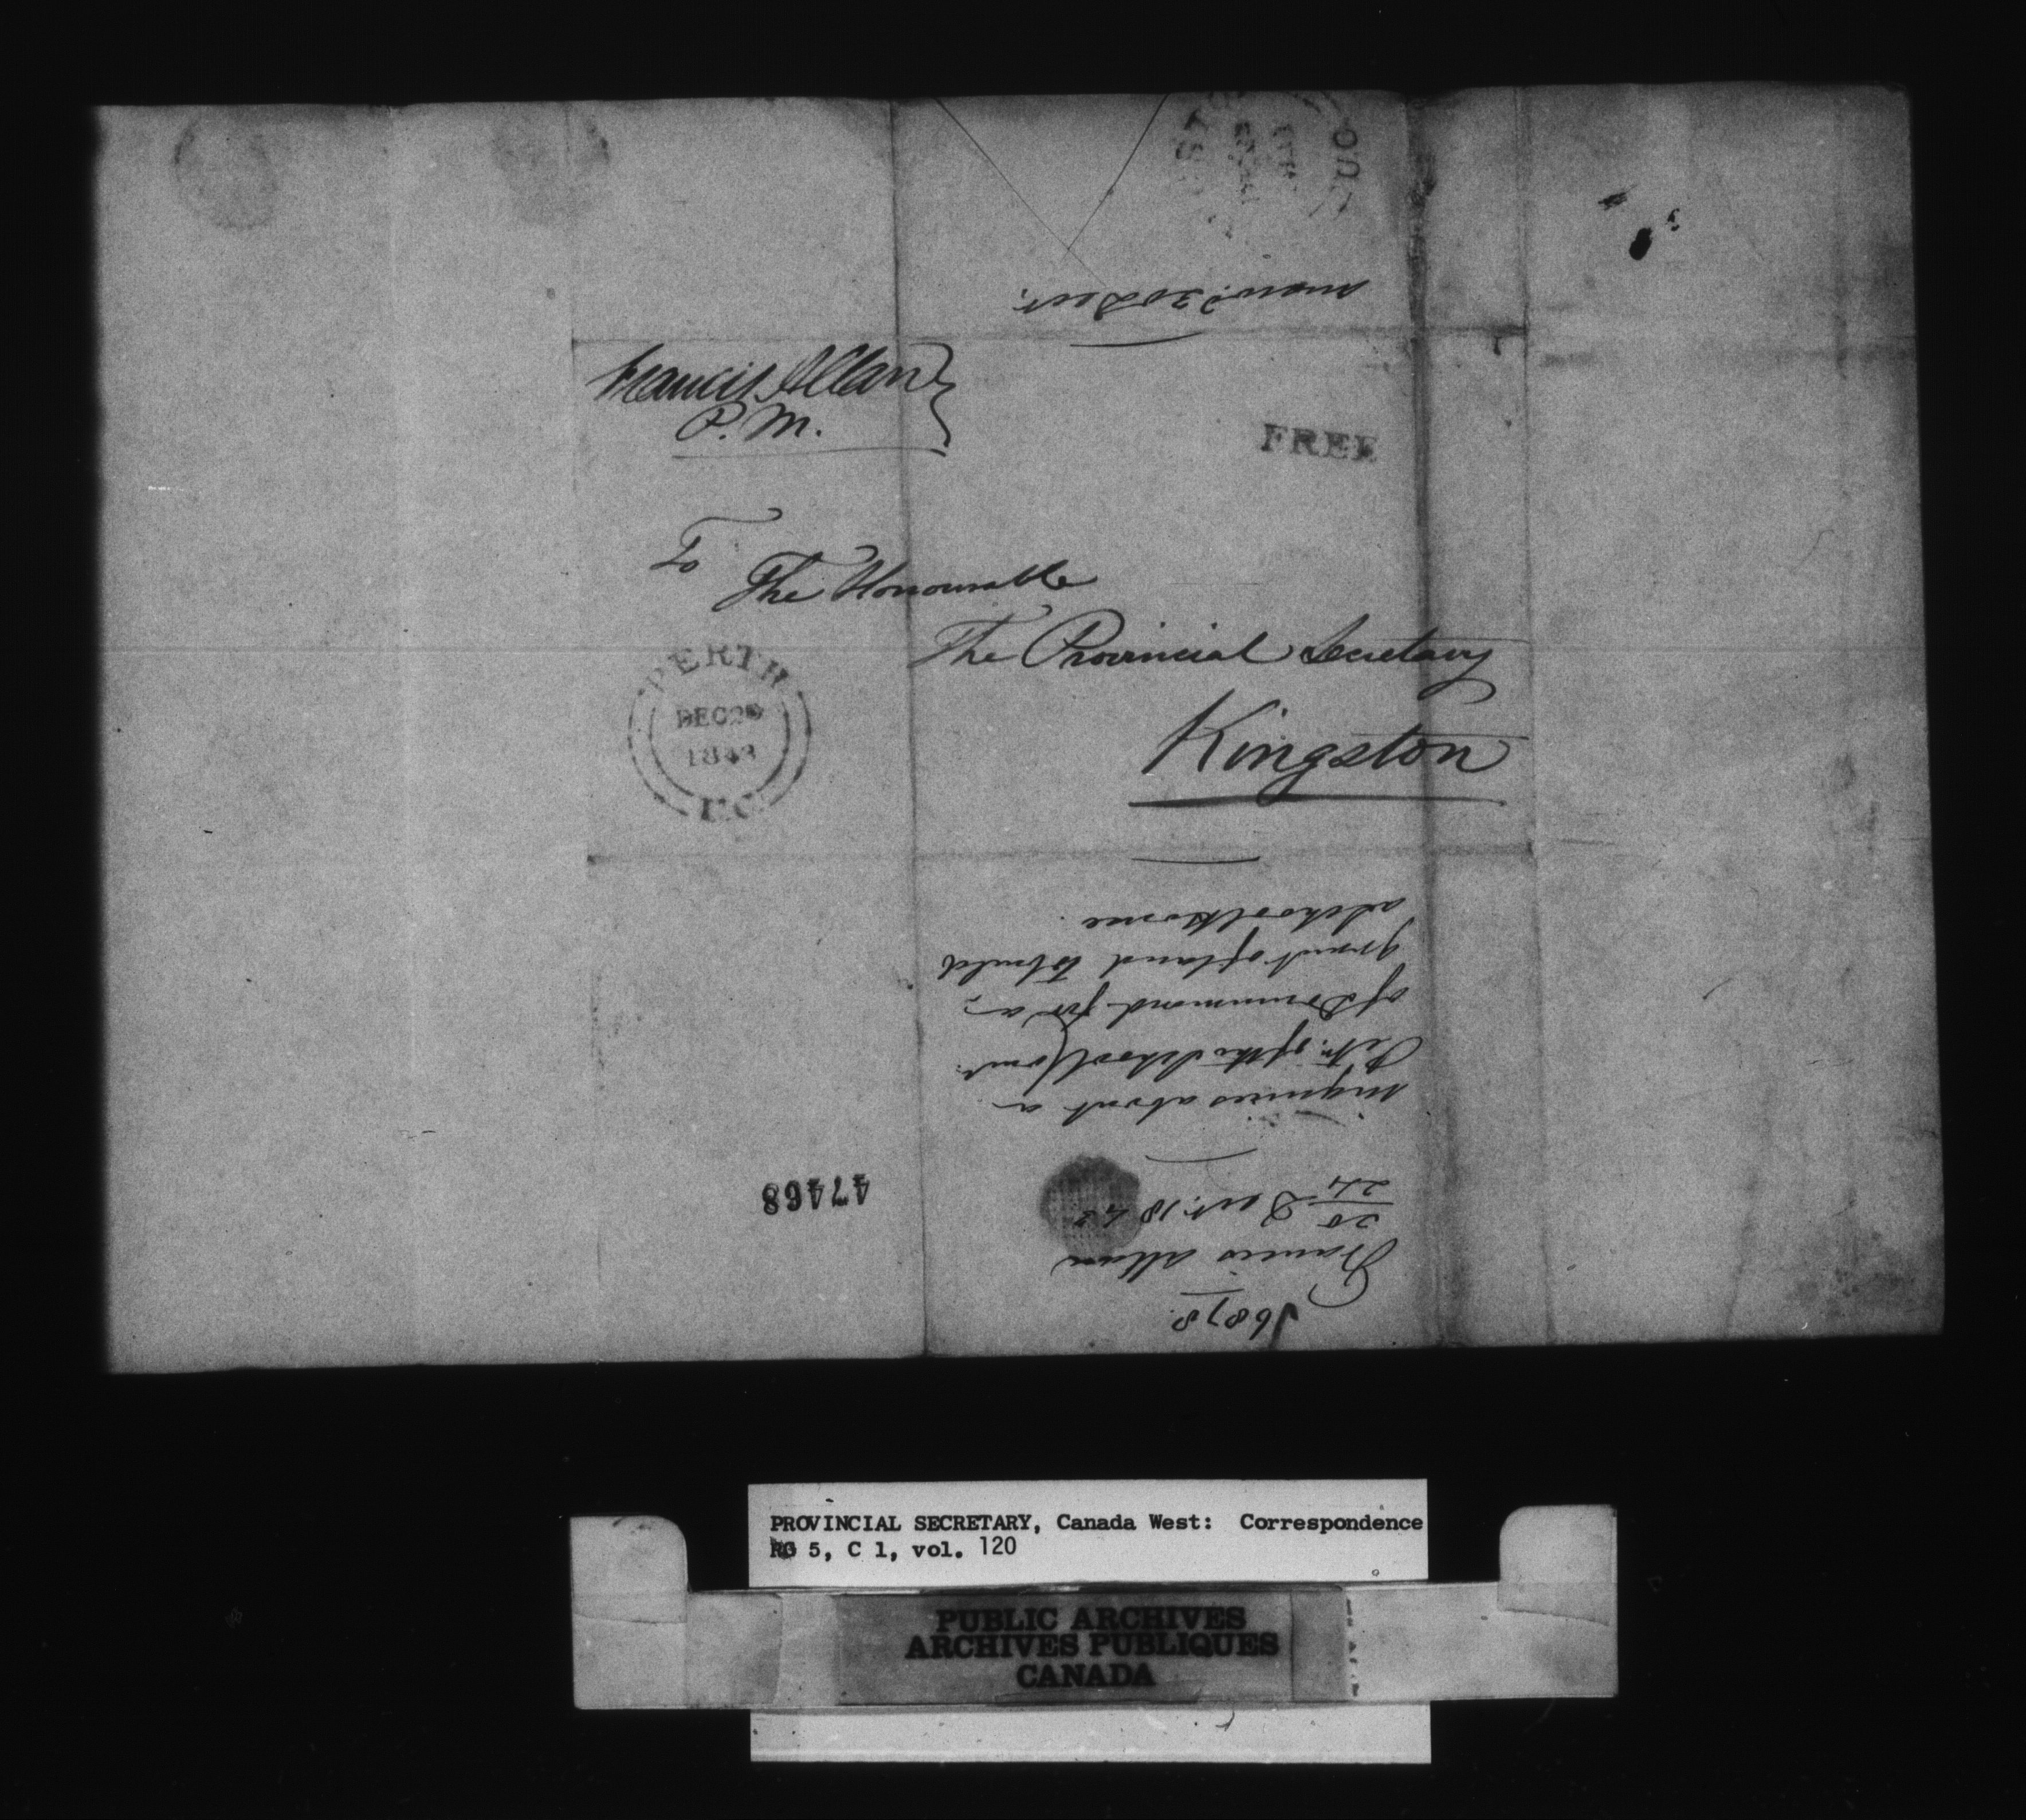 Francis Allan
P. M.
FREE
To
The Honourable
The Provincial Secretary
Kingston
PERTH
DEC 2
1843
U.C.
ansd. 30 Decr.
6878.
Francis Allan
20 Decr. 1843
24
inquires about a
Petn. of the School Comrs.
of Drummond for a
grant of land to build
a schoolhouse.
47468
PROVINCIAL SECRETARY, Canada West: Correspondence
RG 5, C 1, vol. 120
PUBLIC ARCHIVES
ARCHIVES PUBLIQUES
CANADA